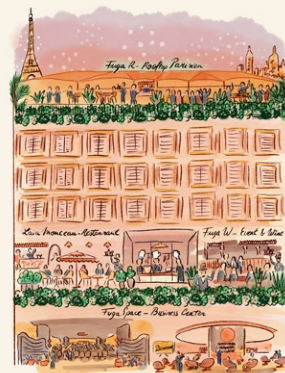 Fuga R - Rooftop Parisien
Luis Monceau - Restaurant
Fuga W - Event & Wine
Fuga Space - Business Center